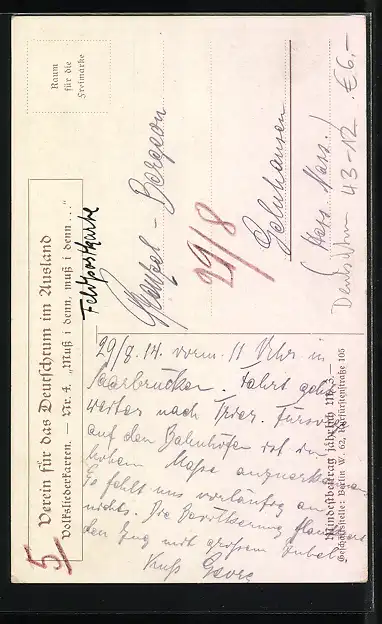 Verein für das Deutschtum im Ausland
Volksliederkarten. — Nr. 4. „Muß i denn, muß i denn ..."
Raum
für die
Freimarke
Feldpostkarte
29/8
Gelnhausen
(Hess. Nass.)
Deutschtum 43-12 €6,-
29/8.14. vorm. 11 Uhr in
Saarbrücken. Fahrt geht
weiter nach Trier.
auf den Bahnhöfen ist in
hohem Maße
Es fehlt uns vorläufig an
nichts. Die Bevölkerung
den Zug mit großem Jubel
Kuß Georg
Mindestbeitrag jährlich Mk. 3.—
Geschäftsstelle: Berlin W. 62, Kurfürstenstraße 105
5